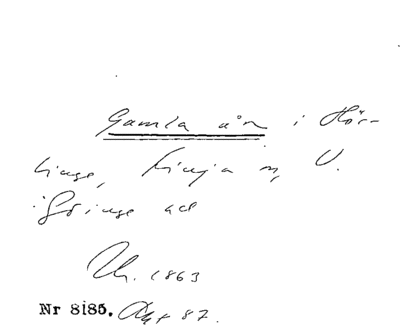 Gamla ån i Hör-
linge, Vinja o, V.
Göinge hd
Ak. 1863
Nr 8185. Akt 87.